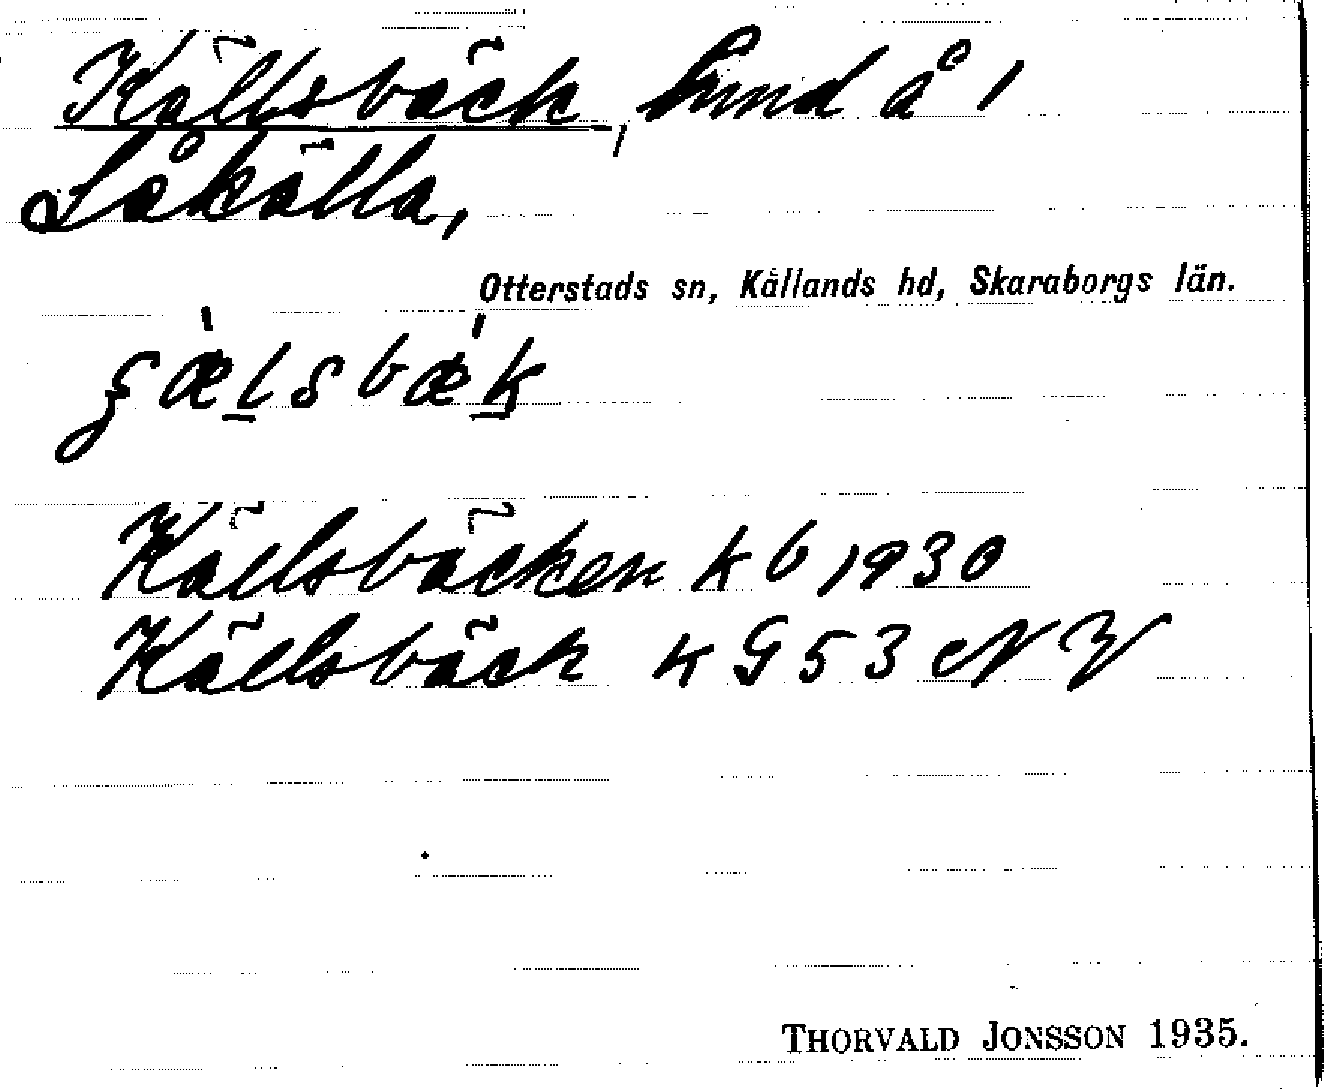 Källsbäck, Lund å 1
Låkälla,
Otterstads sn, Kållands hd, Skaraborgs län.
Källsbäcken kb 1930
Källsbäck k G 53 NV
THORVALD JONSSON 1935.